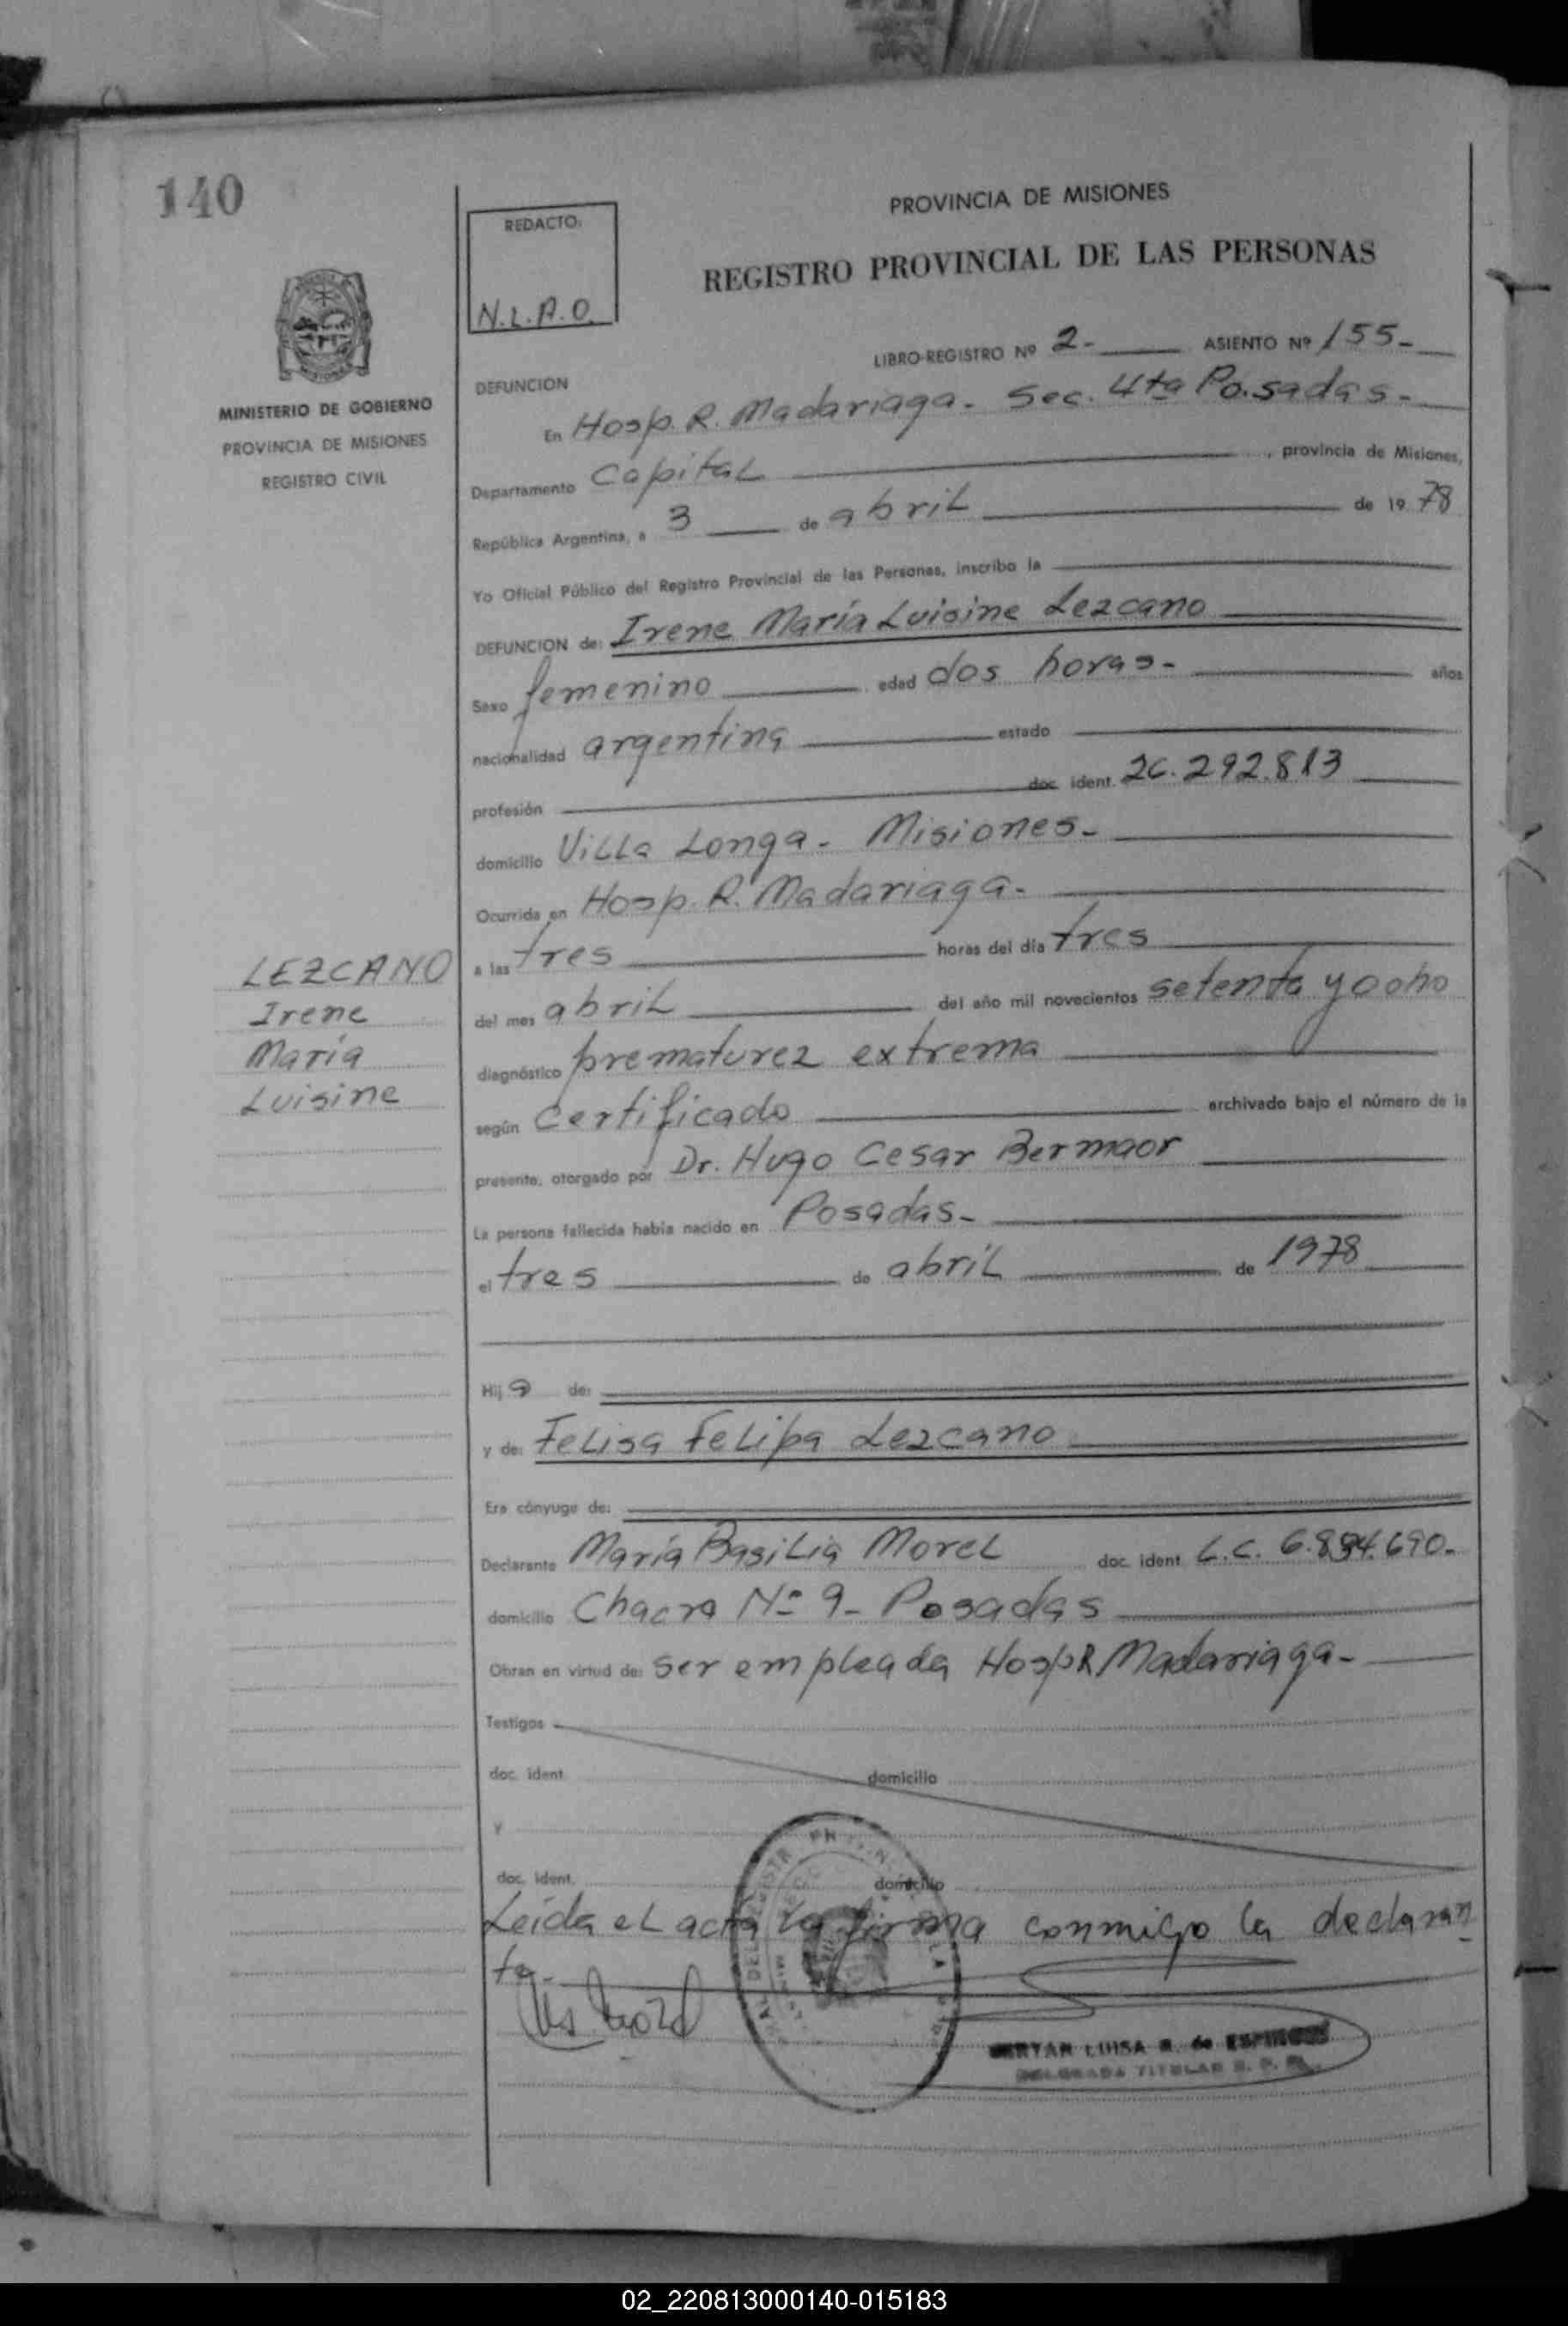 140
REDACTO:
N.L.A.O.
PROVINCIA DE MISIONES
REGISTRO PROVINCIAL DE LAS PERSONAS
MINISTERIO DE GOBIERNO
PROVINCIA DE MISIONES
REGISTRO CIVIL
LIBRO-REGISTRO Nº 2- ASIENTO Nº 155-
DEFUNCION
En Hosp. R. Madariaga. Sec. 4ta Posadas-
Departamento Capital, provincia de Misiones,
República Argentina, a 3 de abril de 19 78
Yo Oficial Público del Registro Provincial de las Personas, inscribo la
DEFUNCION de: Irene María Luisine Lezcano
Sexo femenino edad dos horas- años
nacionalidad argentina estado
profesión doc. ident. 26.292.813
domicilio Villa Longa- Misiones-
Ocurrida en Hosp. R. Madariaga-
a las tres horas del día tres
del mes abril del año mil novecientos setenta y ocho
diagnóstico prematurez extrema
según Certificado archivado bajo el número de la
presente, otorgado por Dr. Hugo Cesar Bermaor
La persona fallecida había nacido en Posadas-
el tres de abril de 1978
Hij a de:
y de: Felisa Felipa Lezcano
Era cónyuge de:
Declarante María Basilia Morel doc. ident. L.C. 6.894.690-
domicilio Chacra Nº 9- Posadas
Obran en virtud de: ser empleada Hosp R Madariaga-
Testigos
doc. ident. domicilio
y
doc. ident. domicilio
Leída el acta la firma conmigo la declaran
te-
LUISA R. de
DELEGADA TITULAR R. P. P.
LEZCANO
Irene
María
Luisine
02_220813000140-015183